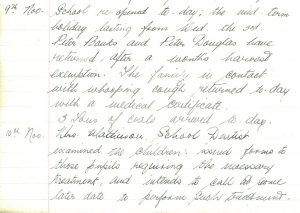 9th Nov. School re-opened to-day; the mid-term
holiday lasting from Wed. the 3rd
Peter Banks and Peter Douglas have
returned after a months harvest
exemption. The family in contact
with whooping cough returned to-day
with a medical certificate.
3 Tons of coals arrived to-day.
10th Nov. School Dentist
examined the children: issued forms to
those pupils requiring the necessary
treatment, and intends to call at some
later date to perform such treatment.